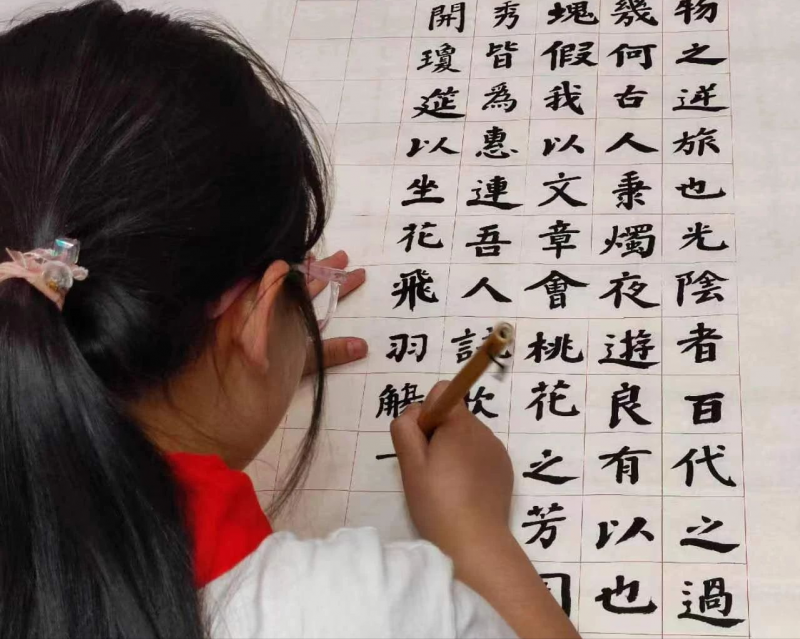 物之逆旅也光陰者百代之過
幾何古人秉燭夜遊良有以也
塊假我以文章會桃花之芳
秀皆爲惠連吾人
開瓊筵以坐花飛羽觴